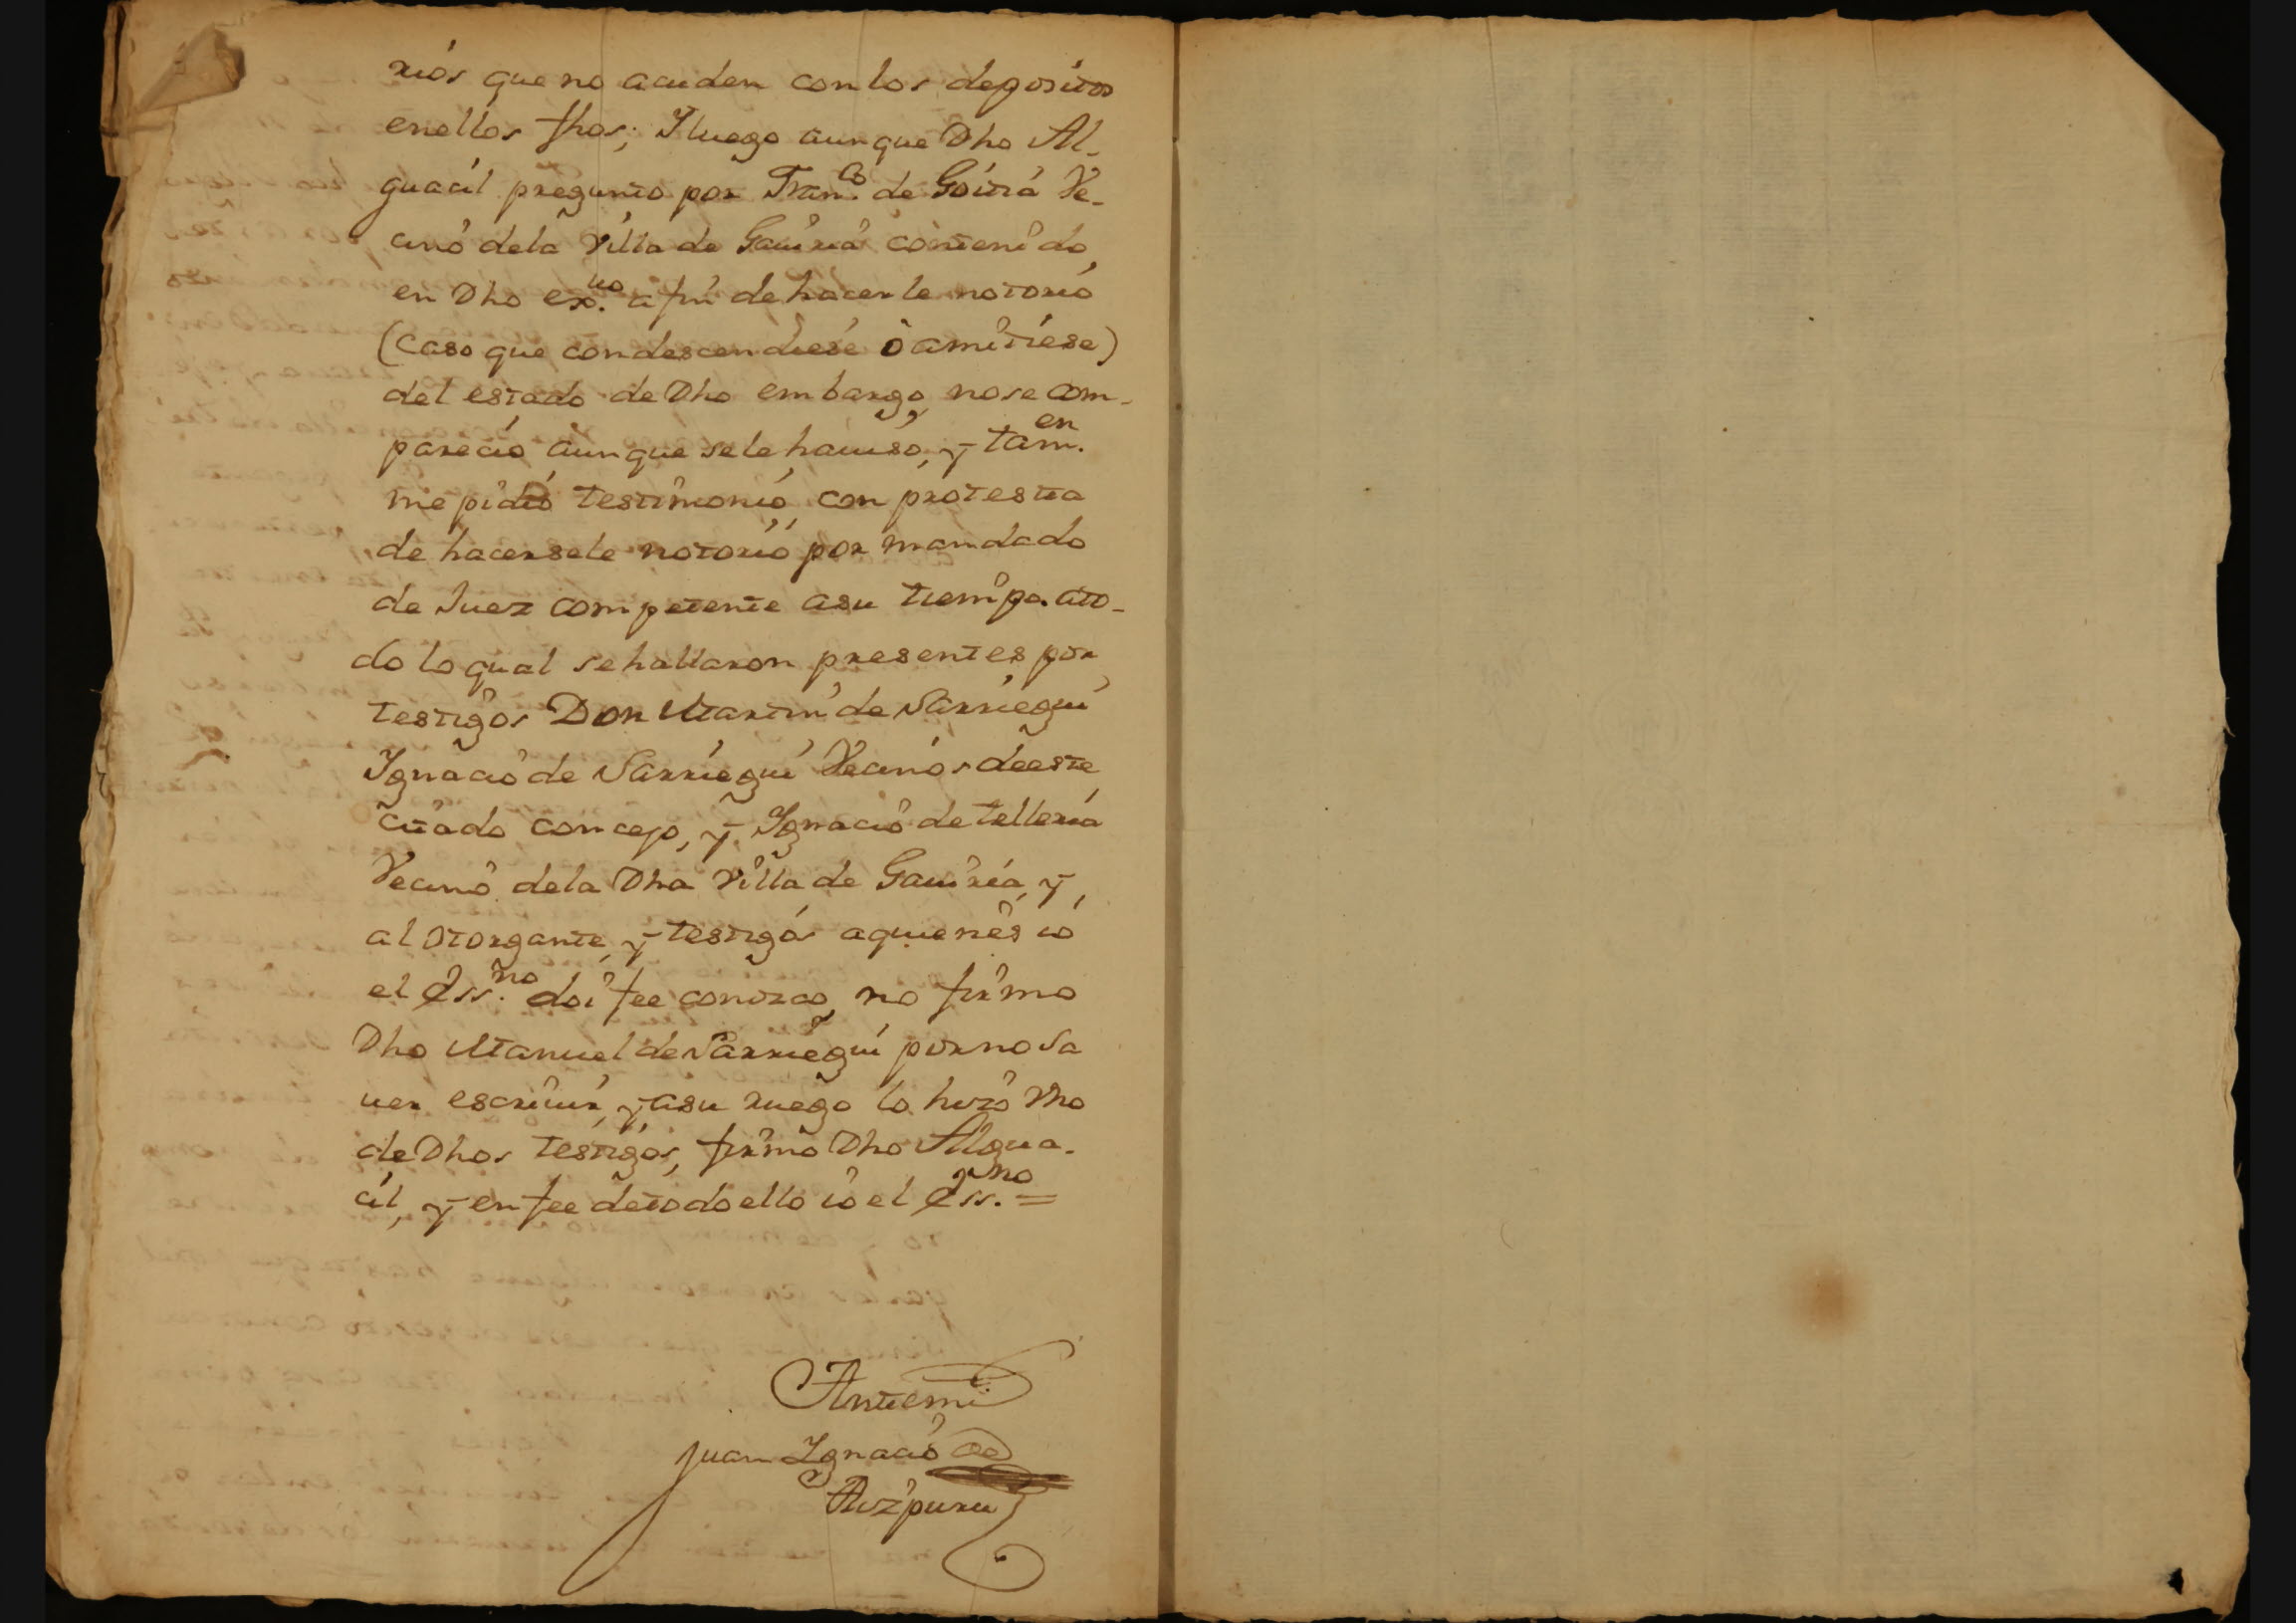 rios que no acuden con los depositos
enellos fhos; Y luego aunque Dho Al-
guacil pregunto por Fran.co de Goitia Ve-
cino dela Villa de Gauiria contenido
en Dho ex.uo a fin de hacerle notorio
(caso que condescendiese ò amitiese)
del estado de Dho embargo, nose com-
parecio aunque sele hauiso, y tam.en
me pidio testimonio con protesta
de hacersele notorio por mandado
de Juez competente asu tiempo. ato-
do lo qual sehallaron presentes por
testigos Don Martin de Sarriegui
Ygnacio de Sarriegui Vecinos deeste
citado concejo, y Ygnacio de telleria
Vecino dela Dha Villa de Gauiria, y
al otorgante, y testigos aquienes io
el Ess.no doi fee conozco, no firmo
Dho Manuel de Sarriegui por no sa
uer escriuir, y asu ruego lo hizo Vno
de Dhos testigos, firmo Dho Algua-
cil, y en fee detodoello io el Ess.no =
Antemi
Juan Ygnacio de
Aizpuru